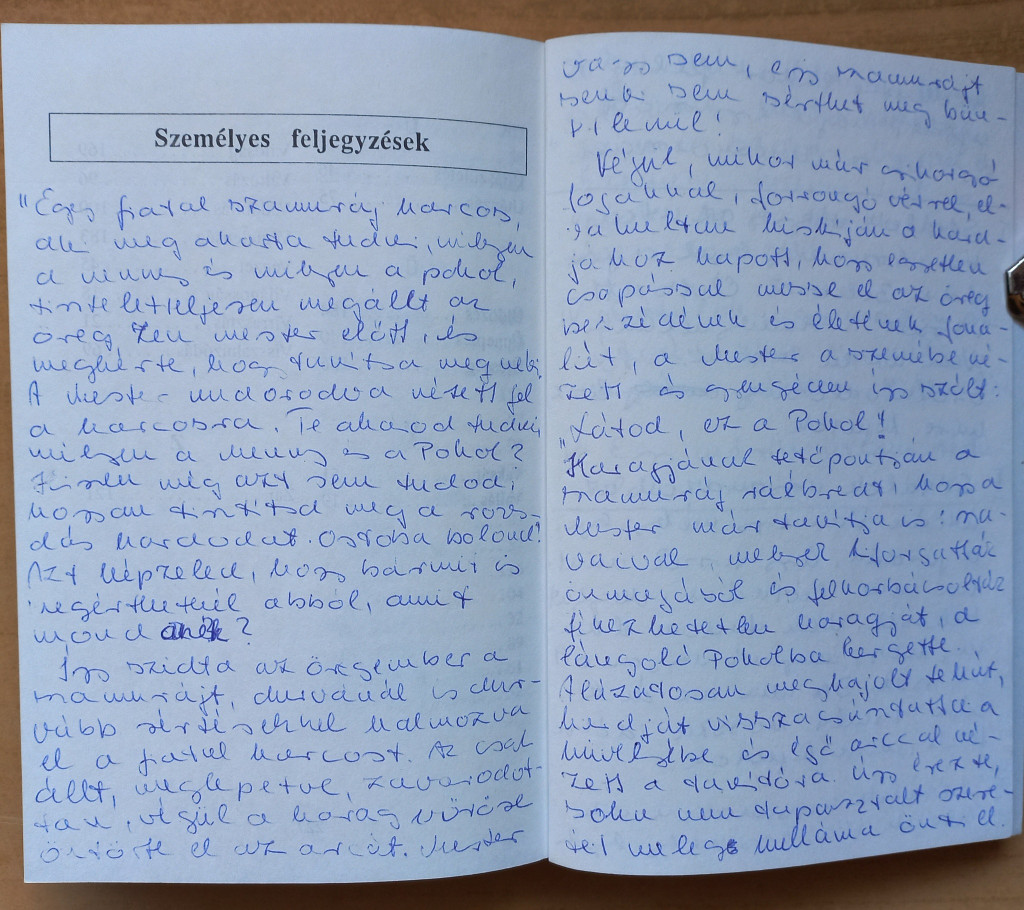 Személyes feljegyzések
"Egy fiatal szamuráj harcos,
aki meg akarta tudni, milyen
a menny és milyen a pokol,
tiszteletteljesen megállt az
öreg Zen mester előtt, és
megkérte, hogy tanítsa meg neki.
A Mester undorodva nézett fel
a harcosra. Te akarod tudni,
milyen a Menny és a Pokol?
Hiszen még azt sem tudod,
hogyan tisztítsd meg a rozs-
dás kardodat. Ostoba bolond!
Azt képzeled, hogy bármit is
megérthetnél abból, amit
mondanék?
Így szidta az öregember a
szamurájt, durvánál is dur-
vább sértésekkel halmozva
el a fiatal harcost. Az csak
állt, meglepetve, zavarodot-
tan, végül a harag vöröse
öntötte el az arcát. Mester
vagy sem, egy szamurájt
senki sem sérthet meg bün-
tetlenül!
Végül, mikor már csikorgó
fogakkal, forrongó vérrel, el-
vakultan kis híján a kard-
jához kapott, hogy egyetlen
csapással messe el az öreg
beszédének és életének fona-
lát, a Mester a szemébe né-
zett és gyengéden így szólt:
"Látod, ez a Pokol!
Haragjának tetőpontján a
szamuráj ráébredt, hogy a
Mester már tanítja is: sza-
vaival melyek kiforgatták
önmagából és felkorbácsolták
fékezhetetlen haragját, a
lángoló Pokolba kergette.
Alázatosan meghajolt tehát,
kardját visszacsúsztatta a
hüvelyébe és égő arccal né-
zett a tanítóra. Úgy érezte,
soha nem tapasztalt szere-
tet meleg hulláma önti el.